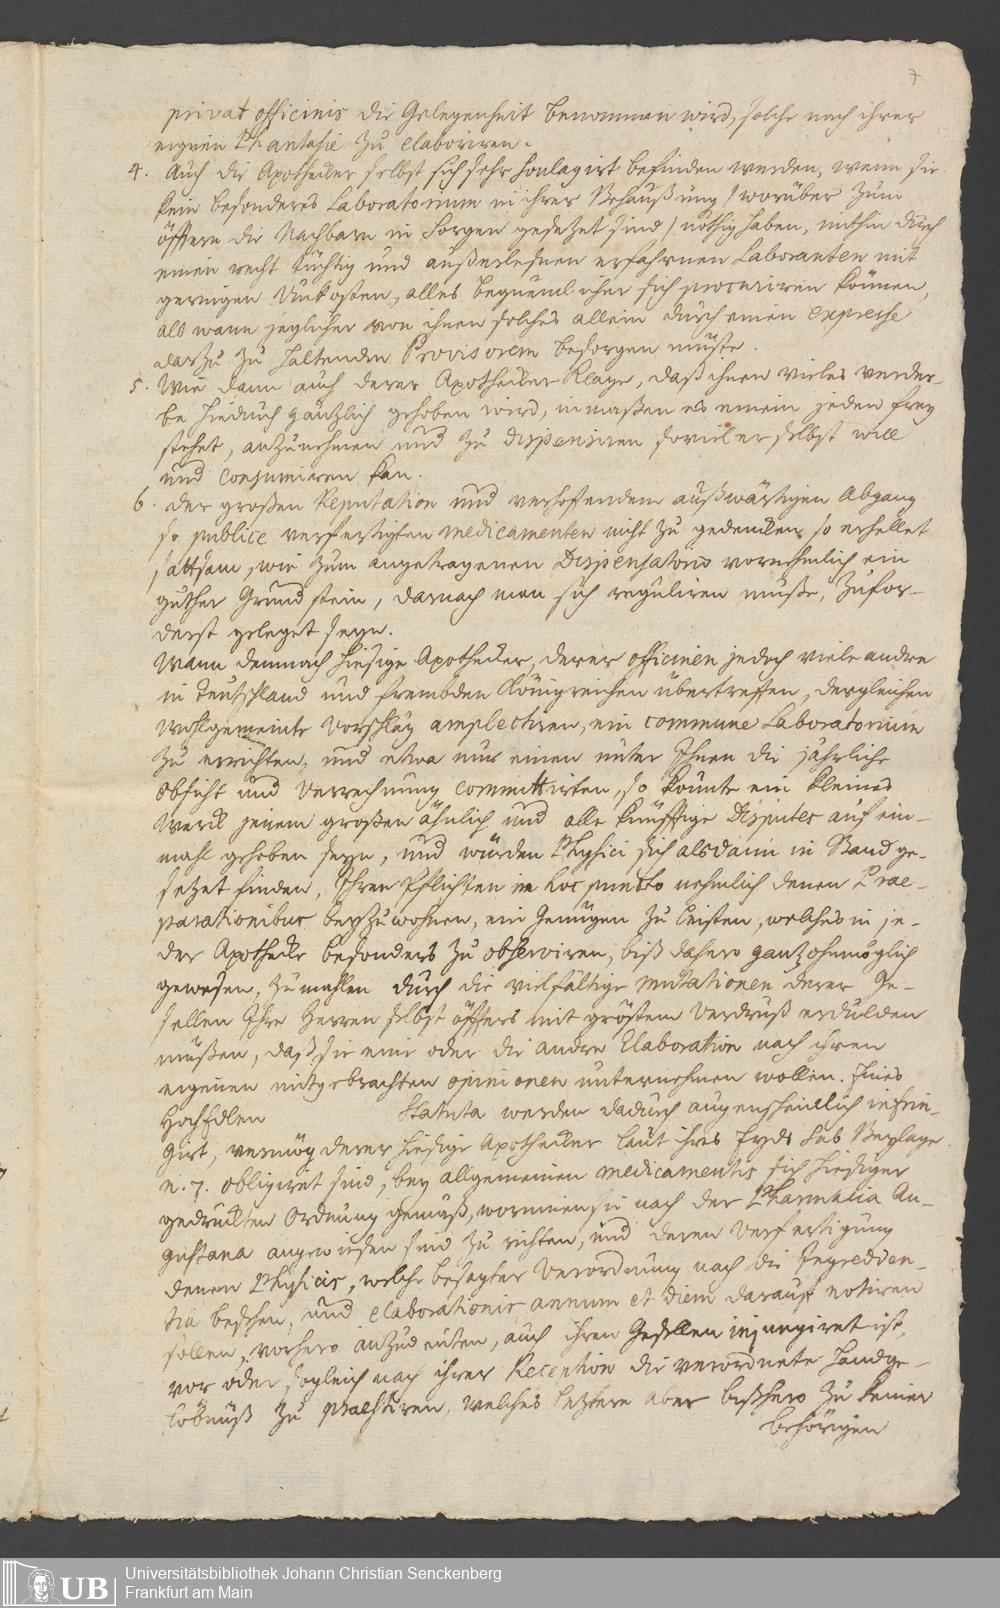 7
privat officinis die Gelegenheit benommen wird, solche nach ihrer
eignen Phantasie zu elaboriren.
4. Auch die Apothecker selbst sich sehr soulagirt befinden werden, wenn sie
kein besonderes Laboratorium in ihrer Behaußung / worüber zum
öfftern die Nachbarn in Sorgen gesetzet sind / nöthig haben, mithin durch
einen recht tüchtig und außerlesnen erfahrnen Laboranten mit
geringen Unkosten, alles bequemlicher sich procuriren können,
als wann jeglicher von ihnen solches allein durch einen expresse
darzu zu haltenden Provisorem besorgen müste.
5. Wie dann auch derer Apothecker Klage, daß ihnen vieles verder-
be hiedurch gäntzlich gehoben wird, inmaßen es einem jeden frey
stehet, anzunehmen und zu dispensiren soviel er selbst will
und consumiren kan.
6. der großen Reputation und verhoffendem außwärtigen Abgang
so publice verfertigten medicamenten nicht zu gedencken, so erhellet
sattsam, wie zum angetragenen Dispensatorio vornehmlich ein
guther Grundstein, darnach man sich reguliren müße, zufor-
derst geleget seyn.
Wann demnach hiesige Apothecker, derer officinen jedoch viele andre
in Teutschland und frembden Königreichen übertreffen, dergleichen
wohlgemeinte Vorschläg amplectiren, ein commune Laboratorium
zu errichten, und etwa nur einen unter Ihnen die jährliche
Obsicht und Verrechnung committirten, so könnte ein kleines
Werck jenem großen ähnlich und alle künfftige Disputes auf ein-
mahl gehoben seyn, und würden Physici sich alsdann in Stand ge-
setzet finden, Ihren Pflichten in hoc puncto nehmlich denen Prae-
parationibus beyzuwohnen, ein Genügen zu leisten, welches in je-
der Apothecke besonders zu observiren, biß dahero gantz ohnmöglich
gewesen, zumahlen durch die vielfältige mutationen derer Ge-
sellen Ihre Herren selbst öffters mit gröstem Verdruß erdulden
müßen, daß sie eine oder die andre Elaboration nach ihren
eigenen mitgebrachten opinionen unternehmen wollen. Eines
HochEdlen Statuta werden dadurch augenscheinlich infrin-
girt, vermög derer hiesige Apothecker laut ihres Eyds sub Beylage
n. 7. obligiret sind, bey allgemeinen medicamentis sich hiesiger
gedruckten Ordnung gemäß, worinnen sie nach der Pharmacia Au-
gustana angewiesen sind zu richten, und deren Verfertigung
denen Physicis, welche besagter Verordnung nach die Ingredien-
tia besehen, und elaborationis annum et diem darauf notiren
sollen, vorhero anzudeuten, auch ihren Gesellen injungiret ist,
vor oder sogleich nach ihrer Reception die verordnete Handge-
löbnüß zu praestiren, welches letztere aber bißhero zu keiner
behörigen
UB
Universitätsbibliothek Johann Christian Senckenberg
Frankfurt am Main